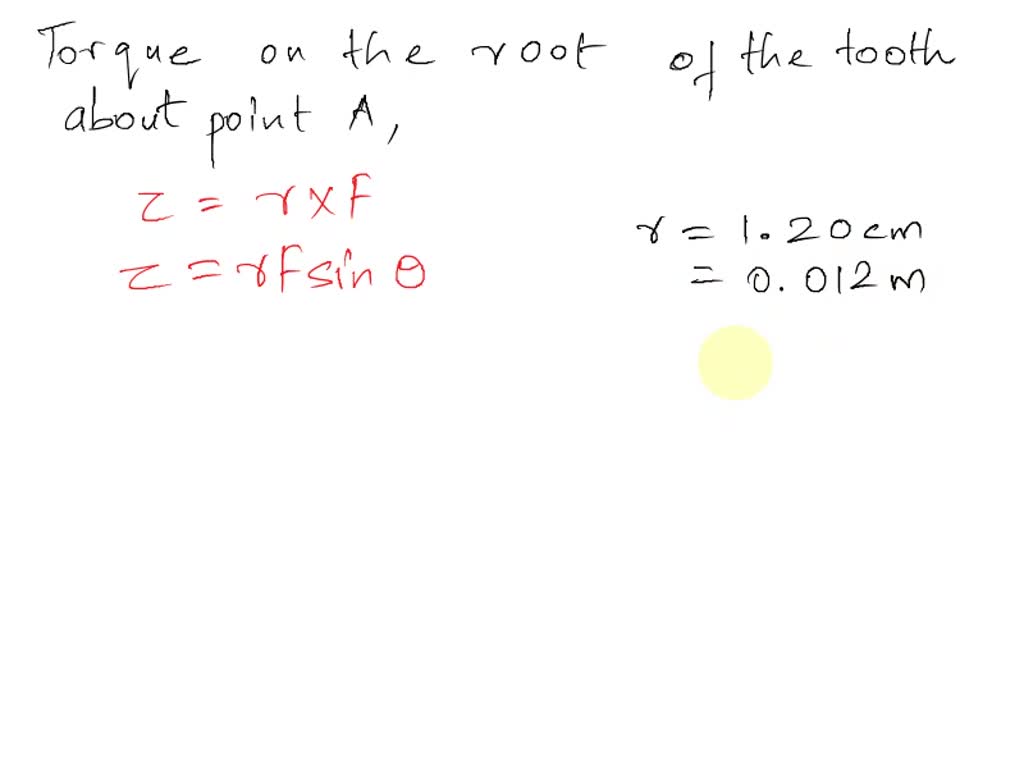 Torque on the root of the tooth
about point A,
τ = r × F
τ = rF sin θ
r = 1.20 cm
= 0.012 m